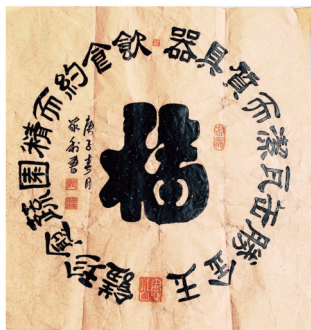 器具質而潔瓦缶勝金玉
飲食約而精園蔬愈珍饈
庚子春月
書